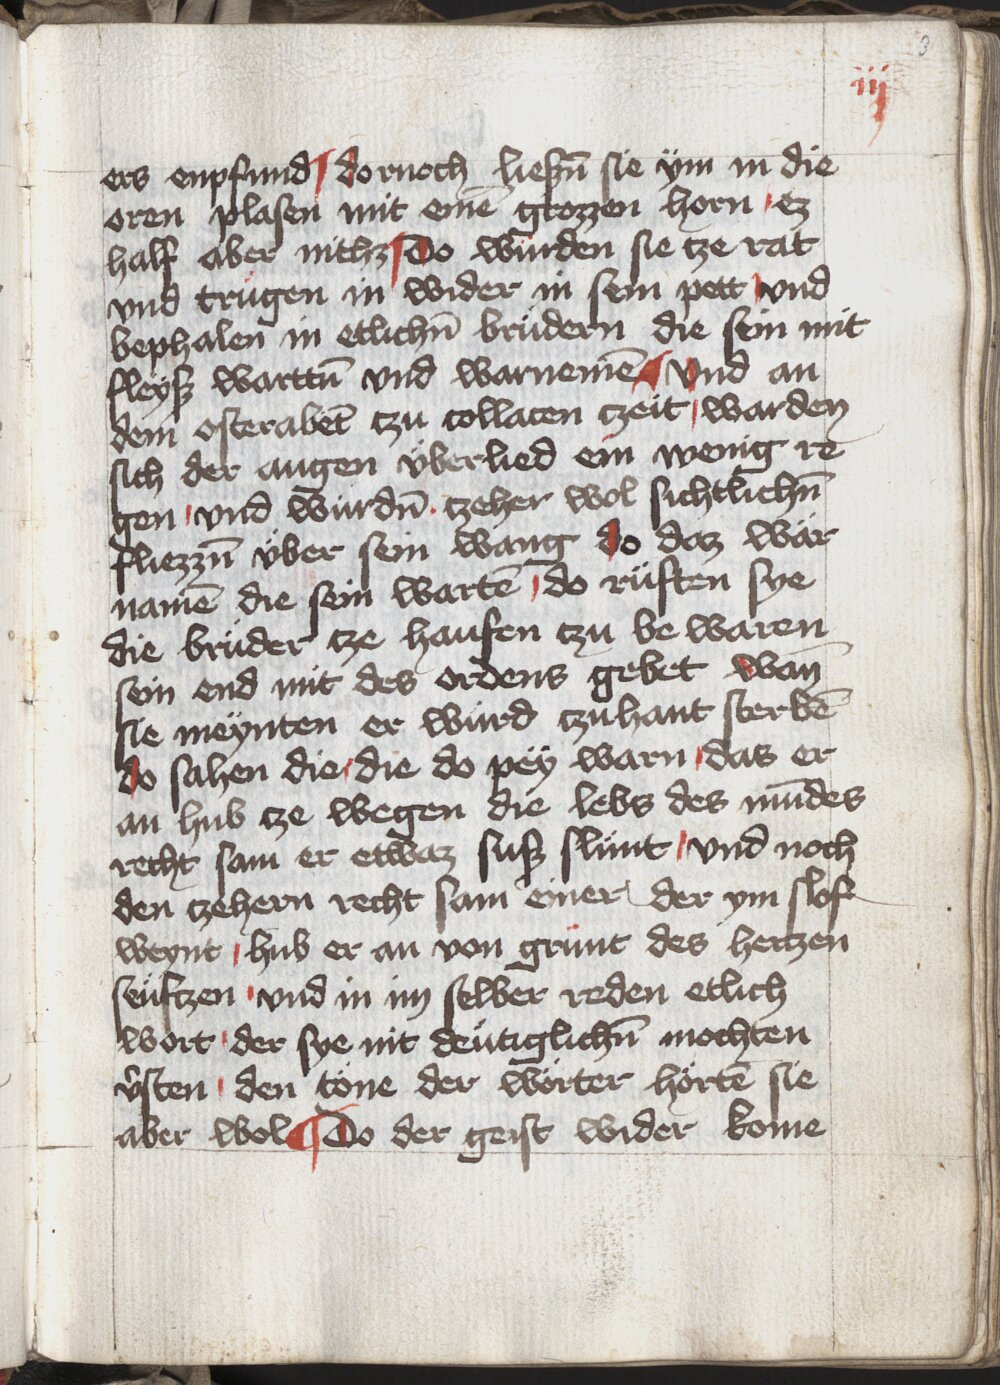 3
iij
ers enpfund dornoch lieſzn̄ sie ÿm in die
oren plasen mit eine̅ grozzen horn ez
half aber nithz Do wurden sie tze rat
vnd trugen in wider in sein pett vnd
bephalen in etlichn̄ brudern die sein mit
fleyſz warttn̄ vnd warneme̅ Vnd an
dem osterabe̅t tzu collacen tzeit warden
sich der augen v̈berlied ein wenig re
gen vnd wurdn̄ tzeher wol sichtlichn̄
fliezzn̄ v̈ber sein wang do daz war
name̅ die sein warte̅ do rufften sye
die bruder tze haufen tzu be waren
sein end mit des ordens gebet wan̄
sie meÿnten er wurd tzuhant sterbe̅
do sahen die die do peÿ warn das er
an hub tze wegen die lebs des mu̅des
recht sam er etwaz suſz slunt vnd noch
den tzehern recht sam einer der ym slof
weynt hub er an von grunt des hertzen
seuftzen vnd in im selber reden etlich
wort der sye nit deutiglichn̄ mochten
v̉sten den tone der wörter hörte̅ sie
aber wol Do der geist wider kome